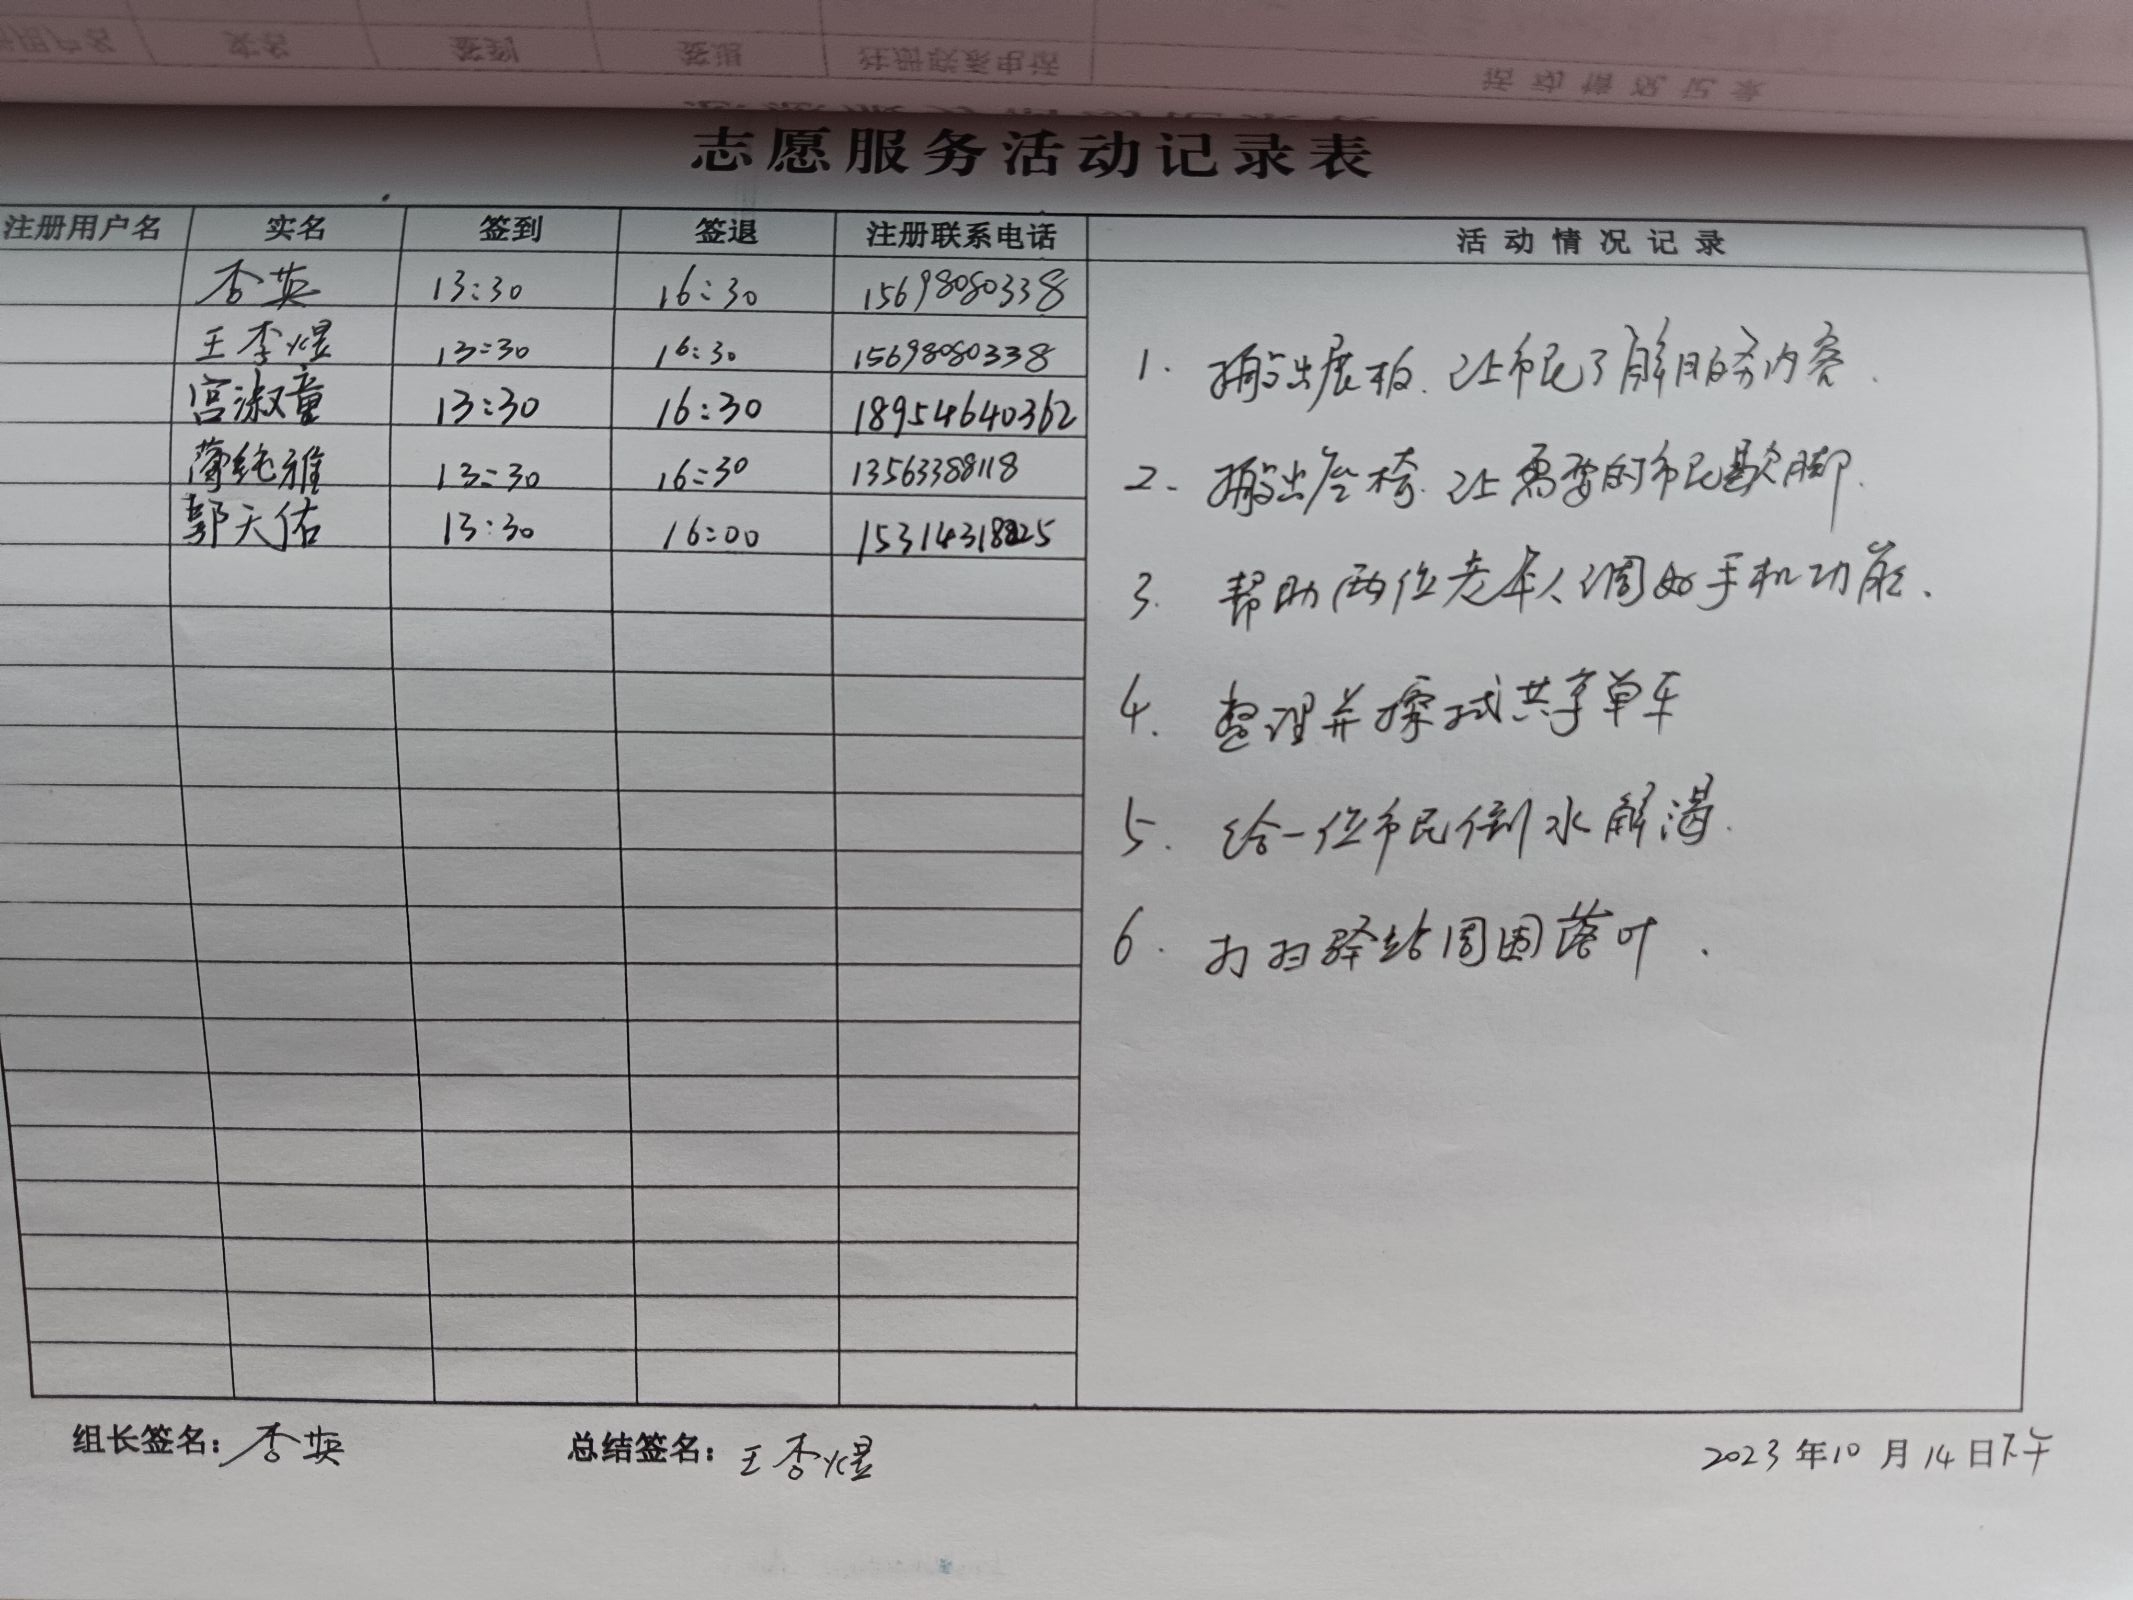 志愿服务活动记录表
注册用户名 实名 签到 签退 注册联系电话 活动情况记录
杏英 13:30 16:30 15698080338
王李煜 13:30 16:30 15698080338
宫淑童 13:30 16:30 18954640362
薄纯雅 13:30 16:30 13563388118
郭天佑 13:30 16:00 15314318825
1. 搬出展板.让市民了解服务内容.
2. 搬出座椅.让需要的市民歇脚.
3. 帮助两位老年人调好手机功能.
4. 整理并擦拭共享单车
5. 给一位市民倒水解渴.
6. 打扫驿站周围落叶.
组长签名:杏英 总结签名:王杏煜 2023年10月14日下午